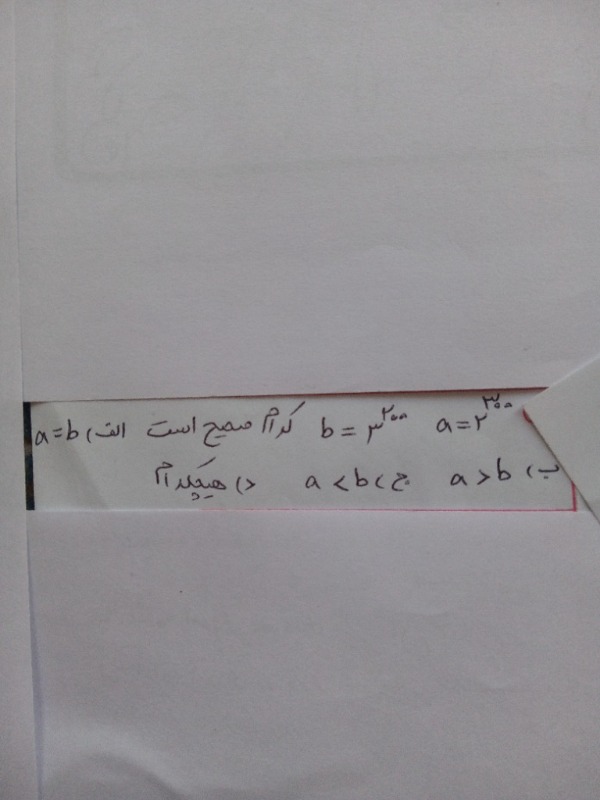 a = ۲^۳۰۰ b = ۳^۲۰۰ کدام صحیح است الف) a = b
ب) a > b ج) a < b د) هیچکدام